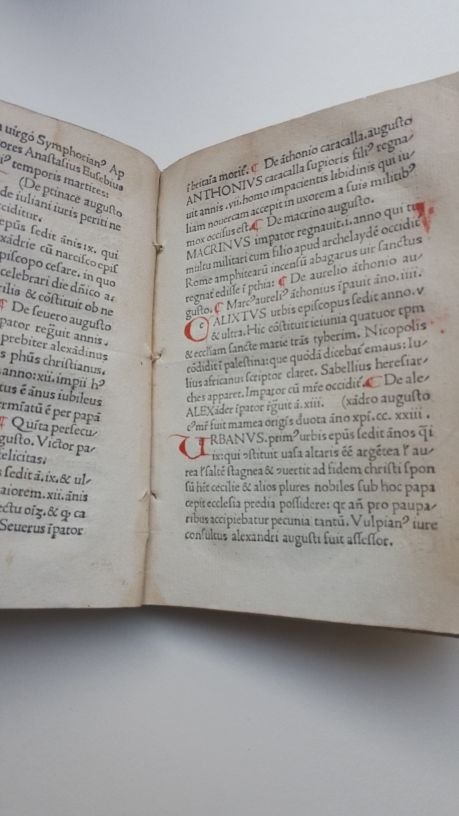 uirgo Symphorianꝰ Ap
ores Anastasius Eusebius
iꝰ temporis martires:
(De ptinace augusto
de iuliani iuris periti ne
cciditur.
epūs sedit ānis ix. qui
xādrie cū narcisco epis
piscopo cesare. in quo
celebrari die dn̄ico a-
rilis & cōstituit ob ne
¶ De seuero augusto
pator regn̄it annis.
prebiter alexādinus
s phūs christianus.
anno:xii. impii hꝰ
tus ē ānus iubileus
ermiatū ē per papā
¶ Quīta persecu
gusto. Victor pa-
elicitas:
s sedit ā.ix.& ul-
aiorem.xii.ānis
ectu oīꝫ.& ꝙ ca
Seuerus īpator
ī britaīa moriť. ¶ De āthonio caracalla.augusto
ANTHONIVS caracalla supioris filiꝰ regna-
uit annis.vii.homo impacientis libidinis qui iu-
liam nouercam accepit in uxorem a suis militibꝰ
mox occisus est. ¶ De macrino augusto.
MACRINVS īmpator regnauit.i.anno qui tu
multu militari cum filio apud archelaydē occidiť
Rome amphiteatrū incensū abagarus uir sanctus
regnať edisse ī pthia: ¶ De aurelio āthonio au-
gusto. ¶ Marcꝰ aureliꝰ āthonius īpauit āno.iiii.
CALIXTVS urbis episcopus sedit anno.v
& ultra.Hic cōstituit ieiunia quatuor tpm
& eccliam sancte marie trās tyberim. Nicopolis
cōdidiť ī palestina:que quōdā dicebať emaus: Iu-
lius africanus scriptor claret. Sabellius heresiar-
ches apparet. Impator cū mr̄e occidiť. ¶ De ale-
ALEXāder īpator rḡuit ā.xiii. (xādro augusto
cꝰ mr̄ fuit mamea origīs duota āno xpi.cc.xxiii.
URBANVS.primꝰ urbis epūs sedit ānos q̄i
ix:qui ɔstituit uasa altaris eē argētea ł au-
rea ł salte stagnea & ɔuertit ad fidem christi spon
sū hēt cecilie & alios plures nobiles sub hoc papa
cepit ecclesia predia possidere: qr añ pro paupa-
ribus accipiebatur pecunia tantū. Vulpianꝰ iure
consultus alexandri augusti fuit assessor.